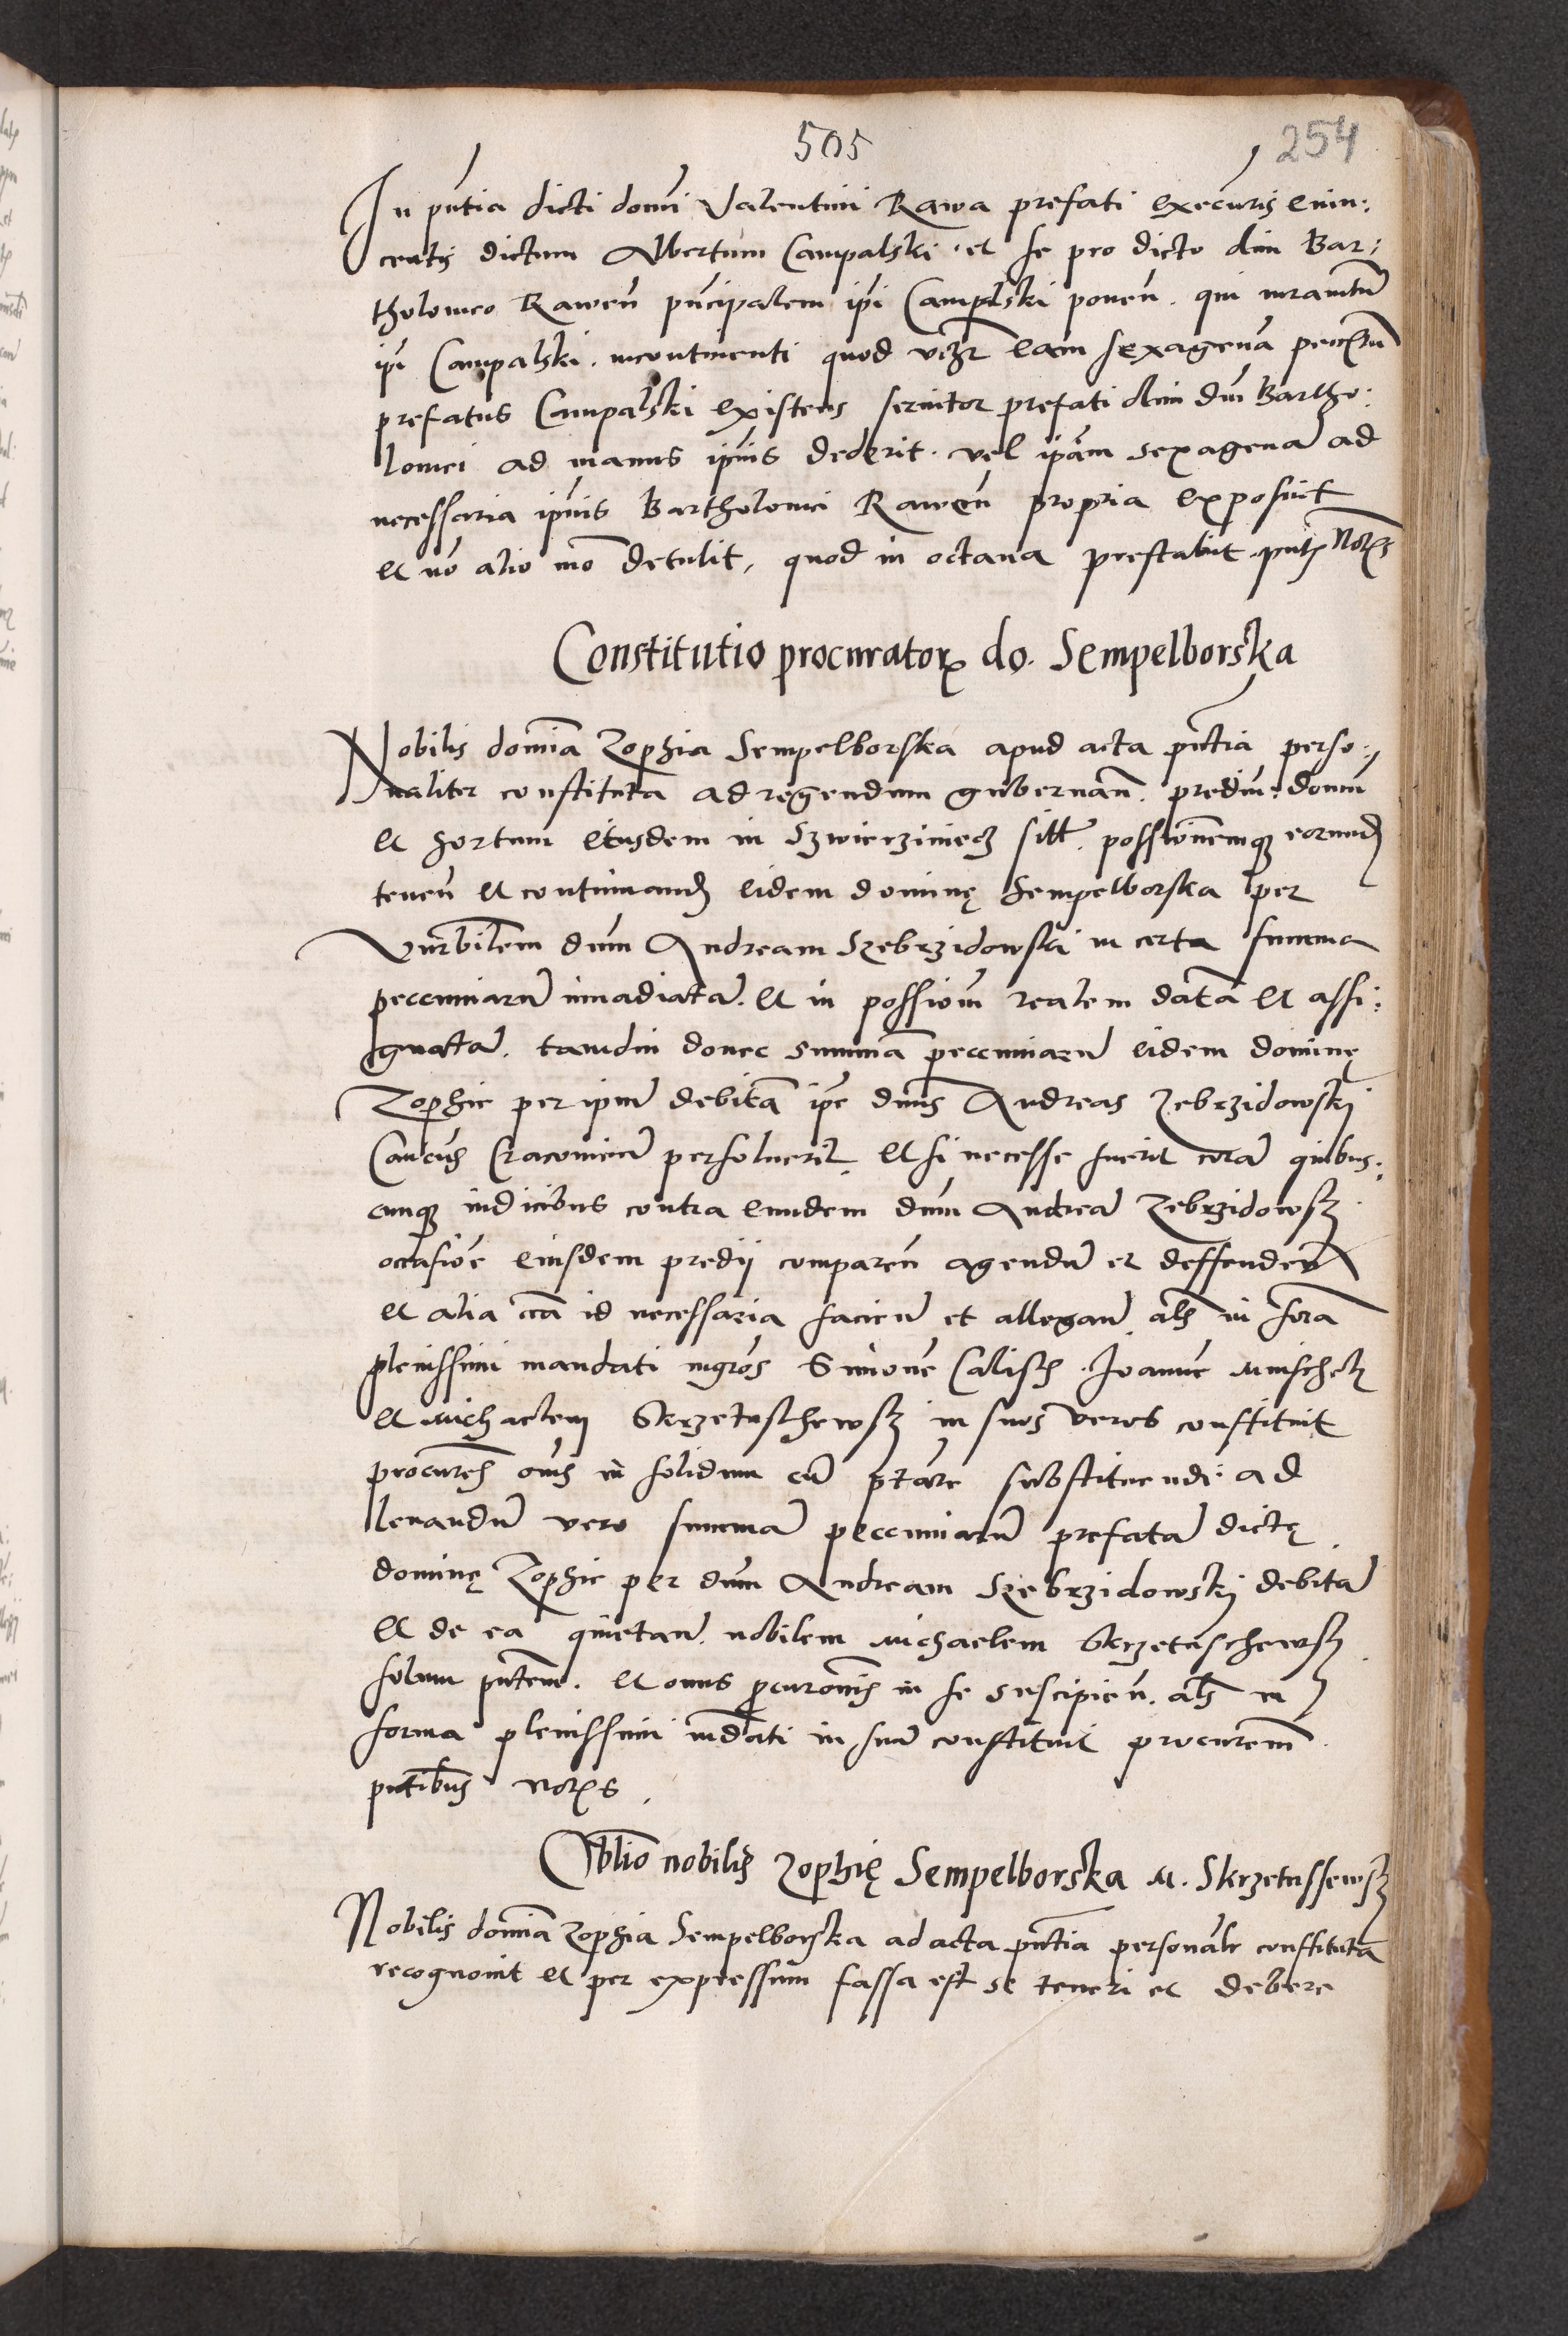 505
254
In pñtia dicti domi Valentini Rawa prefati execuris euin:
centis dictum Albertum Campalski et se pro dicto olim Bar:
tholomeo Raweñ pñcipalem ipi Campalski poneñ. qui iuramtũ
ipi Campalski. incontinenti quod eam sexagenã
prefatus Campalski existens seruitor prefati olim dñi Bartho:
lomei ad manus ipius dederit. vel ipam sexagenã ad
necessaria ipius Bartholomei Raweñ propria exposuit
et nõ alio mõ detulit, quod in octaua prestabit
Constitutio procurator do. Sempelborska
Nobilis domina Zophia Sempelborska apud acta pñtia perso:
naliter constituta ad regendum gubernañ. prediũ. domũ
et hortum eiusdem in Szwierziniecz possionemq eorund
teneñ et continuand eidem dominę Sempelborska per
Vñrbilem dnm Andream Szebrzidowski in certa summa
peccuniarũ inuadiatã. et in possioñ realem datã et assi:
gnatã. tamdiu donec summã peccuniarũ eidem dominę
Zophie per ipum debitã ipe dnus Andreas Zebrzidowski
Cantus Cracouien persoluerit. et si necesse fuerit corã quibus:
cunq iudicibus contra eundem dnm Andreã Zebrzidowsk
occasiõe eiusdem predii compareñ agendũ et deffendeñ
et alia cca id necessaria facieñ et allegañ. als in forã
plenissimi mandati mgros Simonẽ Calisch. Joannẽ
et Michaelem Skrzetuschewsk in suos veros constituit
procures oms in solidum cũ ptãte substituendi. ad
leuandũ vero summã peccuniarũ prefatã dictę
dominę Zophie per dnm Andream Szebrzidowski debitã
et de ea quietañ. nobilem Michaelem Skrzetuschewsk
solum pñtem. et onus pcuronis in se suscipieñ. als in
forma plenissimi mdati in suũ constituit procurem
pñtibus notis.
Oblio nobilis Zophię Sempelborska M. Skrzetussewsk
Nobilis domina Zophia Sempelborska ad acta pñtia personalr constituta
recognouit et per expressum fassa est se teneri et debere